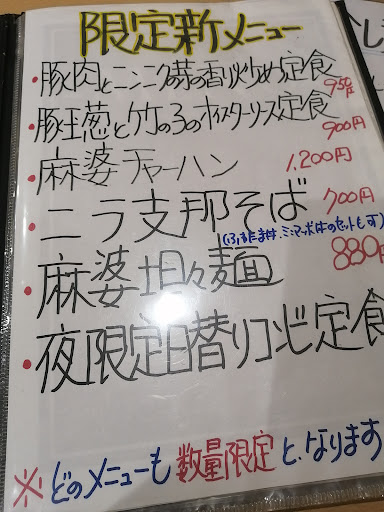 限定新メニュー
・豚肉とニンニク蒜の香り炒め定食
950円
・豚玉葱と竹の子のオイスターソース定食
900円
・麻婆チャーハン
1,200円
・ニラ支那そば
700円
・麻婆坦々麺
880円
・夜限定日替りコンビ定食
※どのメニューも数量限定と、なります